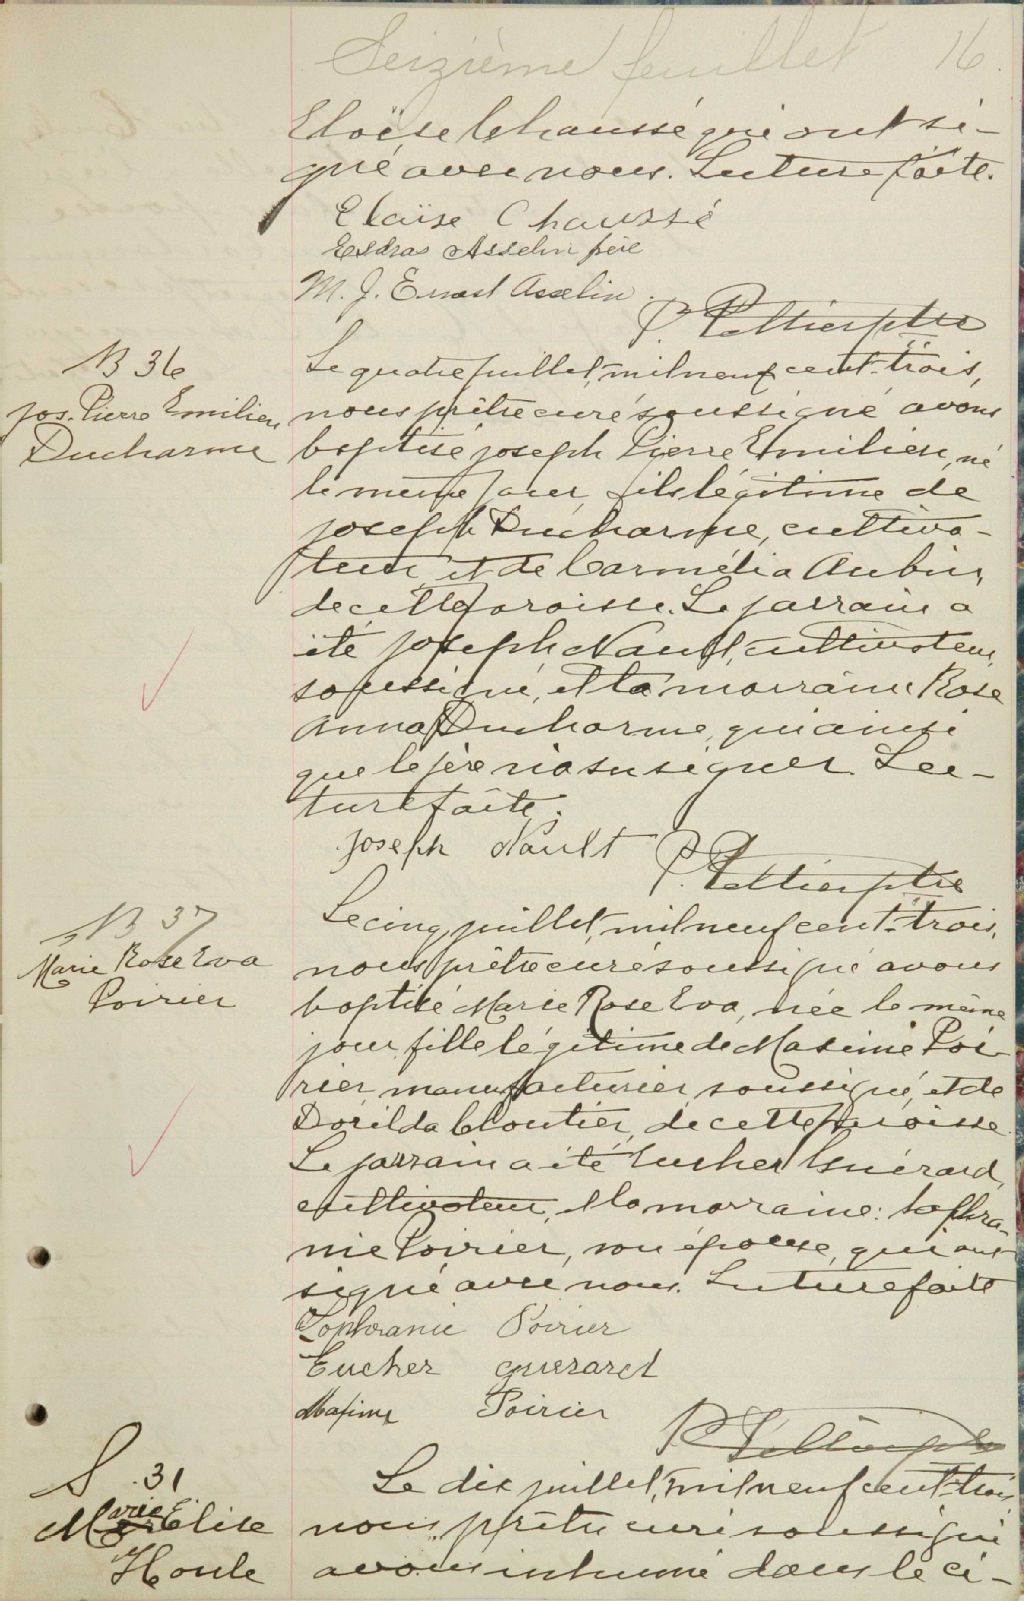 Seizième feuillet 16.
Eloïse Chaussé qui ont si-
gné avec nous. Lecture faite.
Eloïse Chaussé
Esdras Asselin père
M. J. Ernest Asselin.
P. Pelletier ptre
B 36
Jos. Pierre Emilien
Ducharme
Le quatre juillet, mil neuf cent-trois,
nous prêtre curé soussigné avons
baptisé joseph Pierre Emilien, né
le même jour, fils légitime de
joseph Ducharme, cultiva-
teur, et de Carmélia Aubin,
de cette paroisse. Le parrain a
été joseph Nault, cultivateur,
soussigné, et la marraine Rose
Anna Ducharme, qui ainsi
que le père n'a su signer. Lec-
ture faite.
Joseph Nault
P. Pelletier ptre
B 37
Marie Rose Eva
Poirier
Le cinq juillet, mil neuf cent-trois,
nous prêtre curé soussigné avons
baptisé Marie Rose Eva, née le même
jour, fille légitime de Maxime Poi-
rier, manufacturier soussigné, et de
Dorilda Cloutier, de cette paroisse.
Le parrain a été Eucher Guérard,
cultivateur, et la marraine: Sophra-
nie Poirier, son épouse, qui ont
signé avec nous. Lecture faite
Sophranie Poirier
Eucher guerard
Maxime Poirier
P. Pelletier ptre
S. 31
Marie Elise
Houle
Le dix juillet, mil neuf cent-trois,
nous, prêtre curé soussigné
avons inhumé dans le ci-